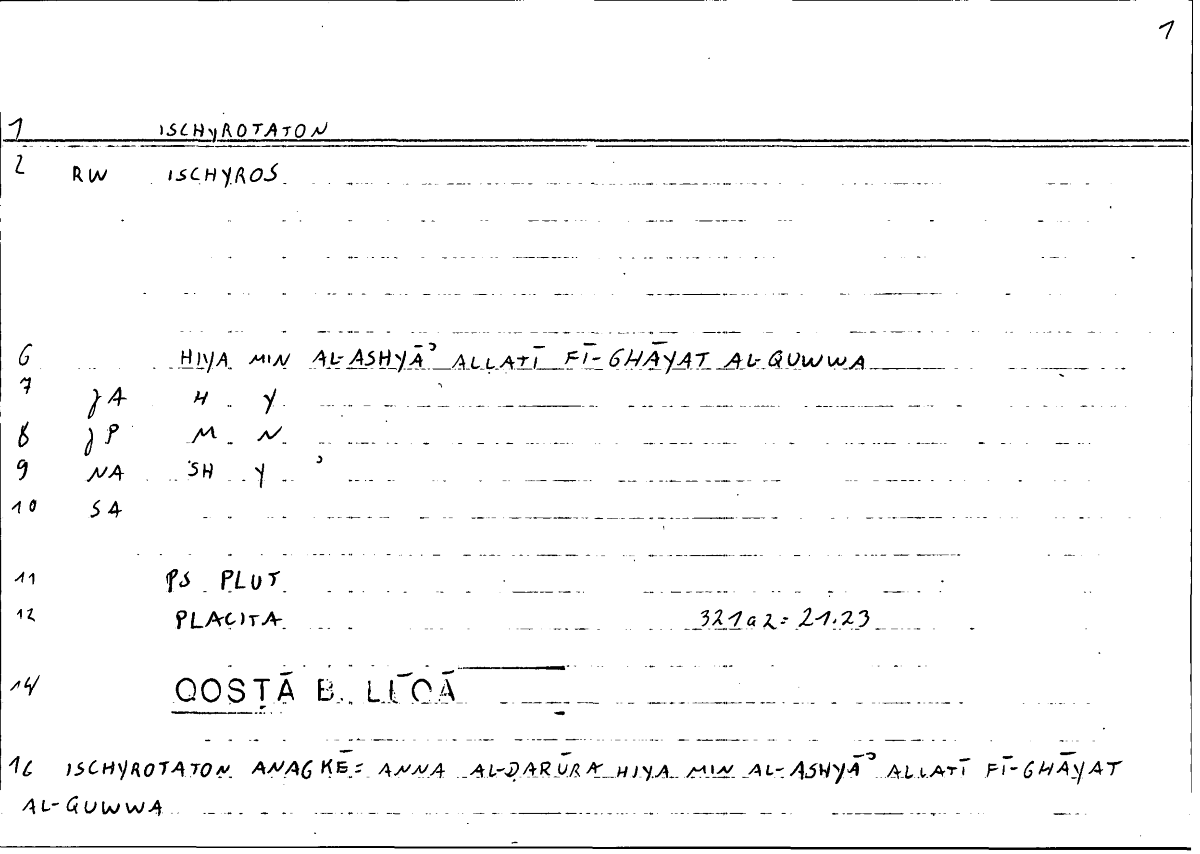 1
1 ISCHYROTATON
2 RW ISCHYROS
6 HIYA MIN AL-ASHYĀʾ ALLATĪ FĪ-GHĀYAT AL-QUWWA
7 JA H Y
8 JP M N
9 NA SH Y ʾ
10 SA
11 PS PLUT
12 PLACITA 321a2 = 21.23
14 QOSṬĀ B. LŪQĀ
16 ISCHYROTATON ANAGKĒ = ANNA AL-ḌARŪRA HIYA MIN AL-ASHYĀʾ ALLATĪ FĪ-GHĀYAT
AL-QUWWA